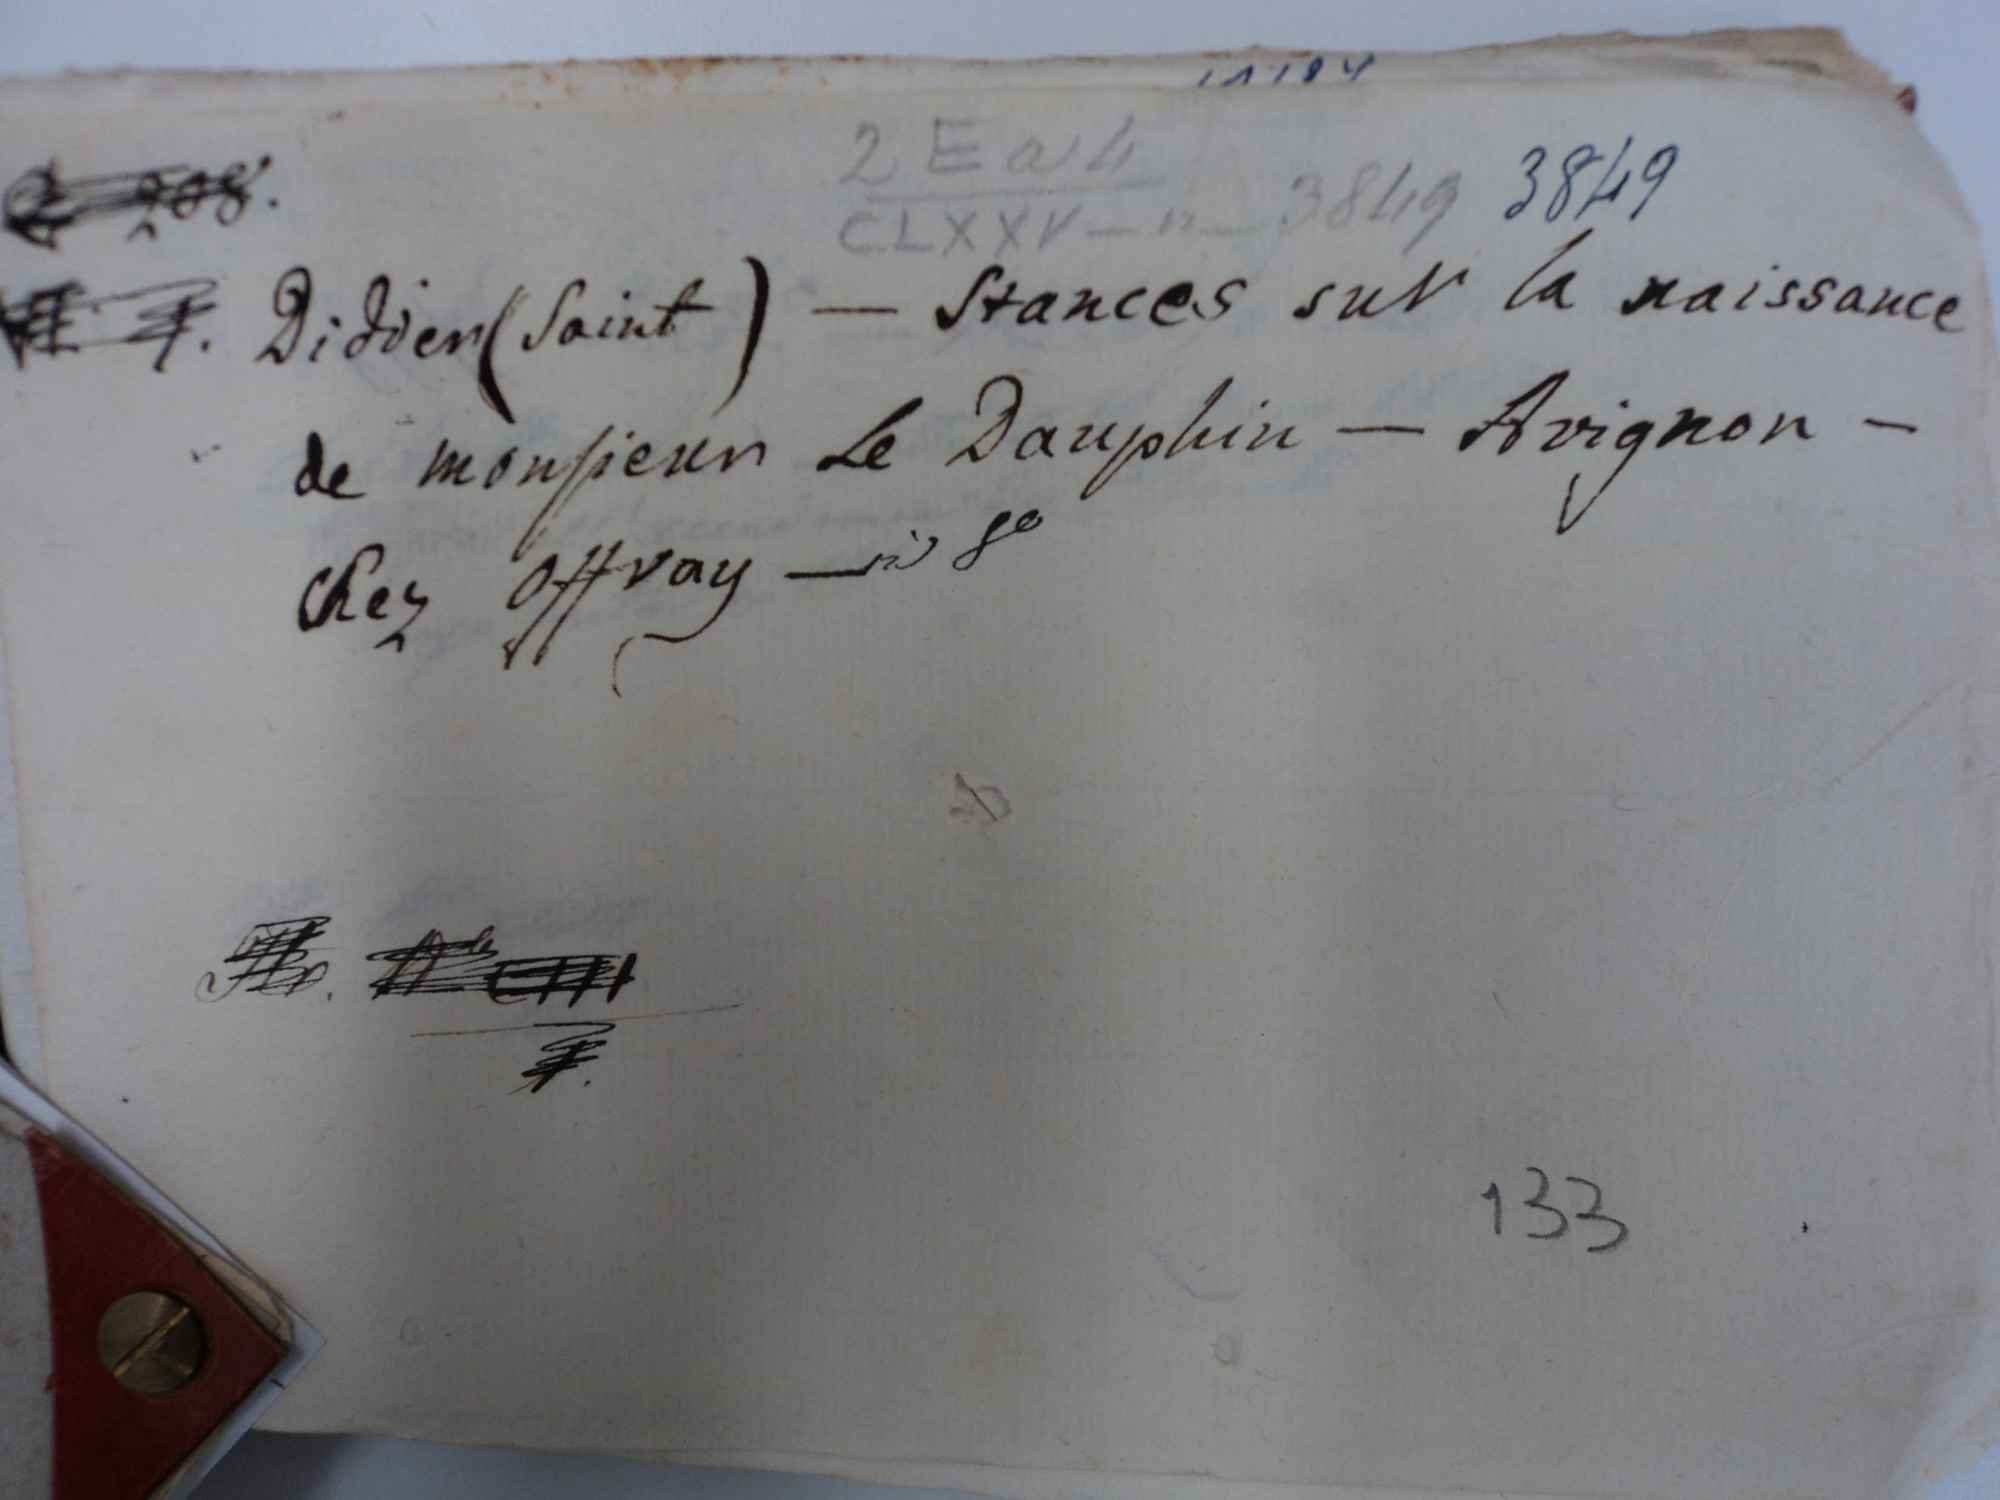 2 E a 4
CLXXV — n — 3849 3849
208.
Didier (Saint) — Stances sur la naissance
de monsieur Le Dauphin — Avignon —
chez Offray — in 8°
133